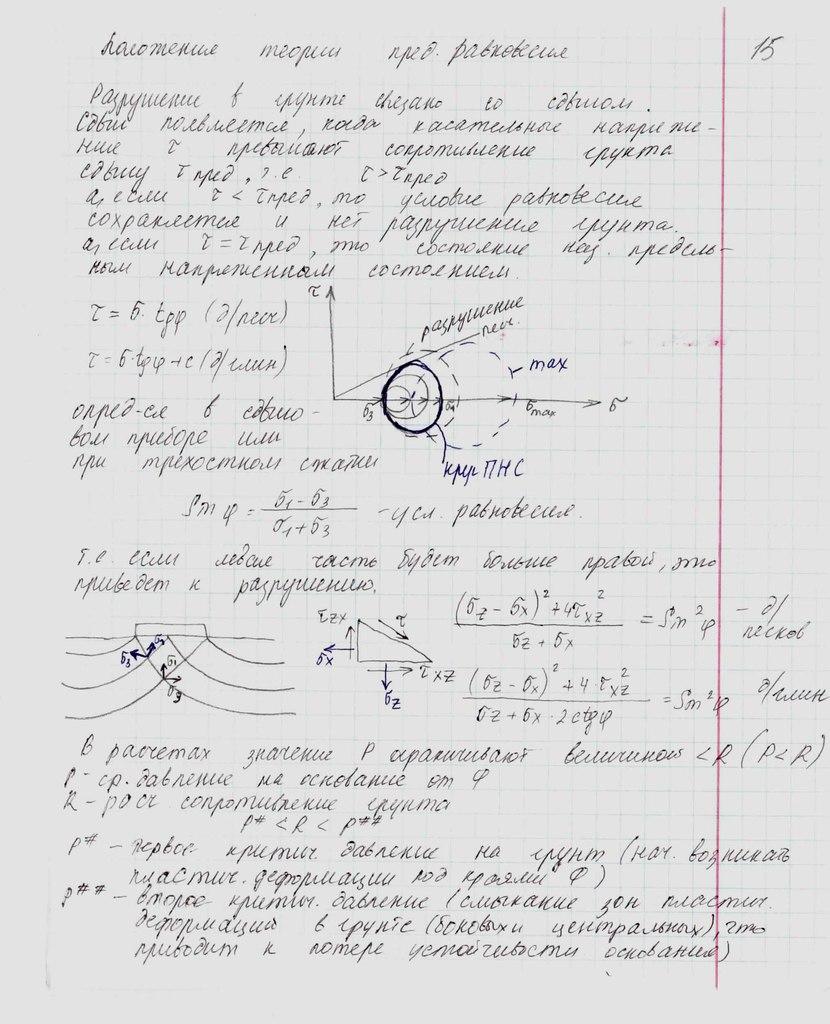 Положения теории пред. равновесия 15
Разрушение в грунте связано со сдвигом.
Сдвиг появляется, когда касательные напряже-
ние τ превышают сопротивление грунта
сдвигу τпред, т.е. τ > τпред
а, если τ < τпред, то условие равновесия
сохраняется и нет разрушения грунта.
а, если τ = τпред, это состояние наз. предель-
ным напряженным состоянием.
τ = σ · tgφ (д/песч)
τ = σ·tgφ + c (д/глин)
τ
разрушение
песч.
max
σ3 σ1 σmax σ
круг ПНС
опред-ся в сдвиго-
вом приборе или
при трехостном сжатии
Sin φ = (σ1 - σ3) / (σ1 + σ3) - усл. равновесия.
т.е. если левая часть будет больше правой, это
приведет к разрушению.
σ3 σ1 σ1 σ3
τzx τ σx τxz σz
((σz - σx)² + 4τxz²) / (σz + σx) = Sin²φ - д/песков
((σz - σx)² + 4·τxz²) / (σz + σx · 2ctgφ) = Sin²φ д/глин
В расчетах значение P ограничивают величиной < R (P < R)
P - ср. давление на основание от Ф
R - расч сопротивление грунта
P# < R < P##
P# - первое критич. давление на грунт (нач. возникать
пластич. деформации под краями Ф)
P## - второе критич. давление (смыкание зон пластич.
деформаций в грунте (боковых и центральных), что
приводит к потере устойчивости основания)